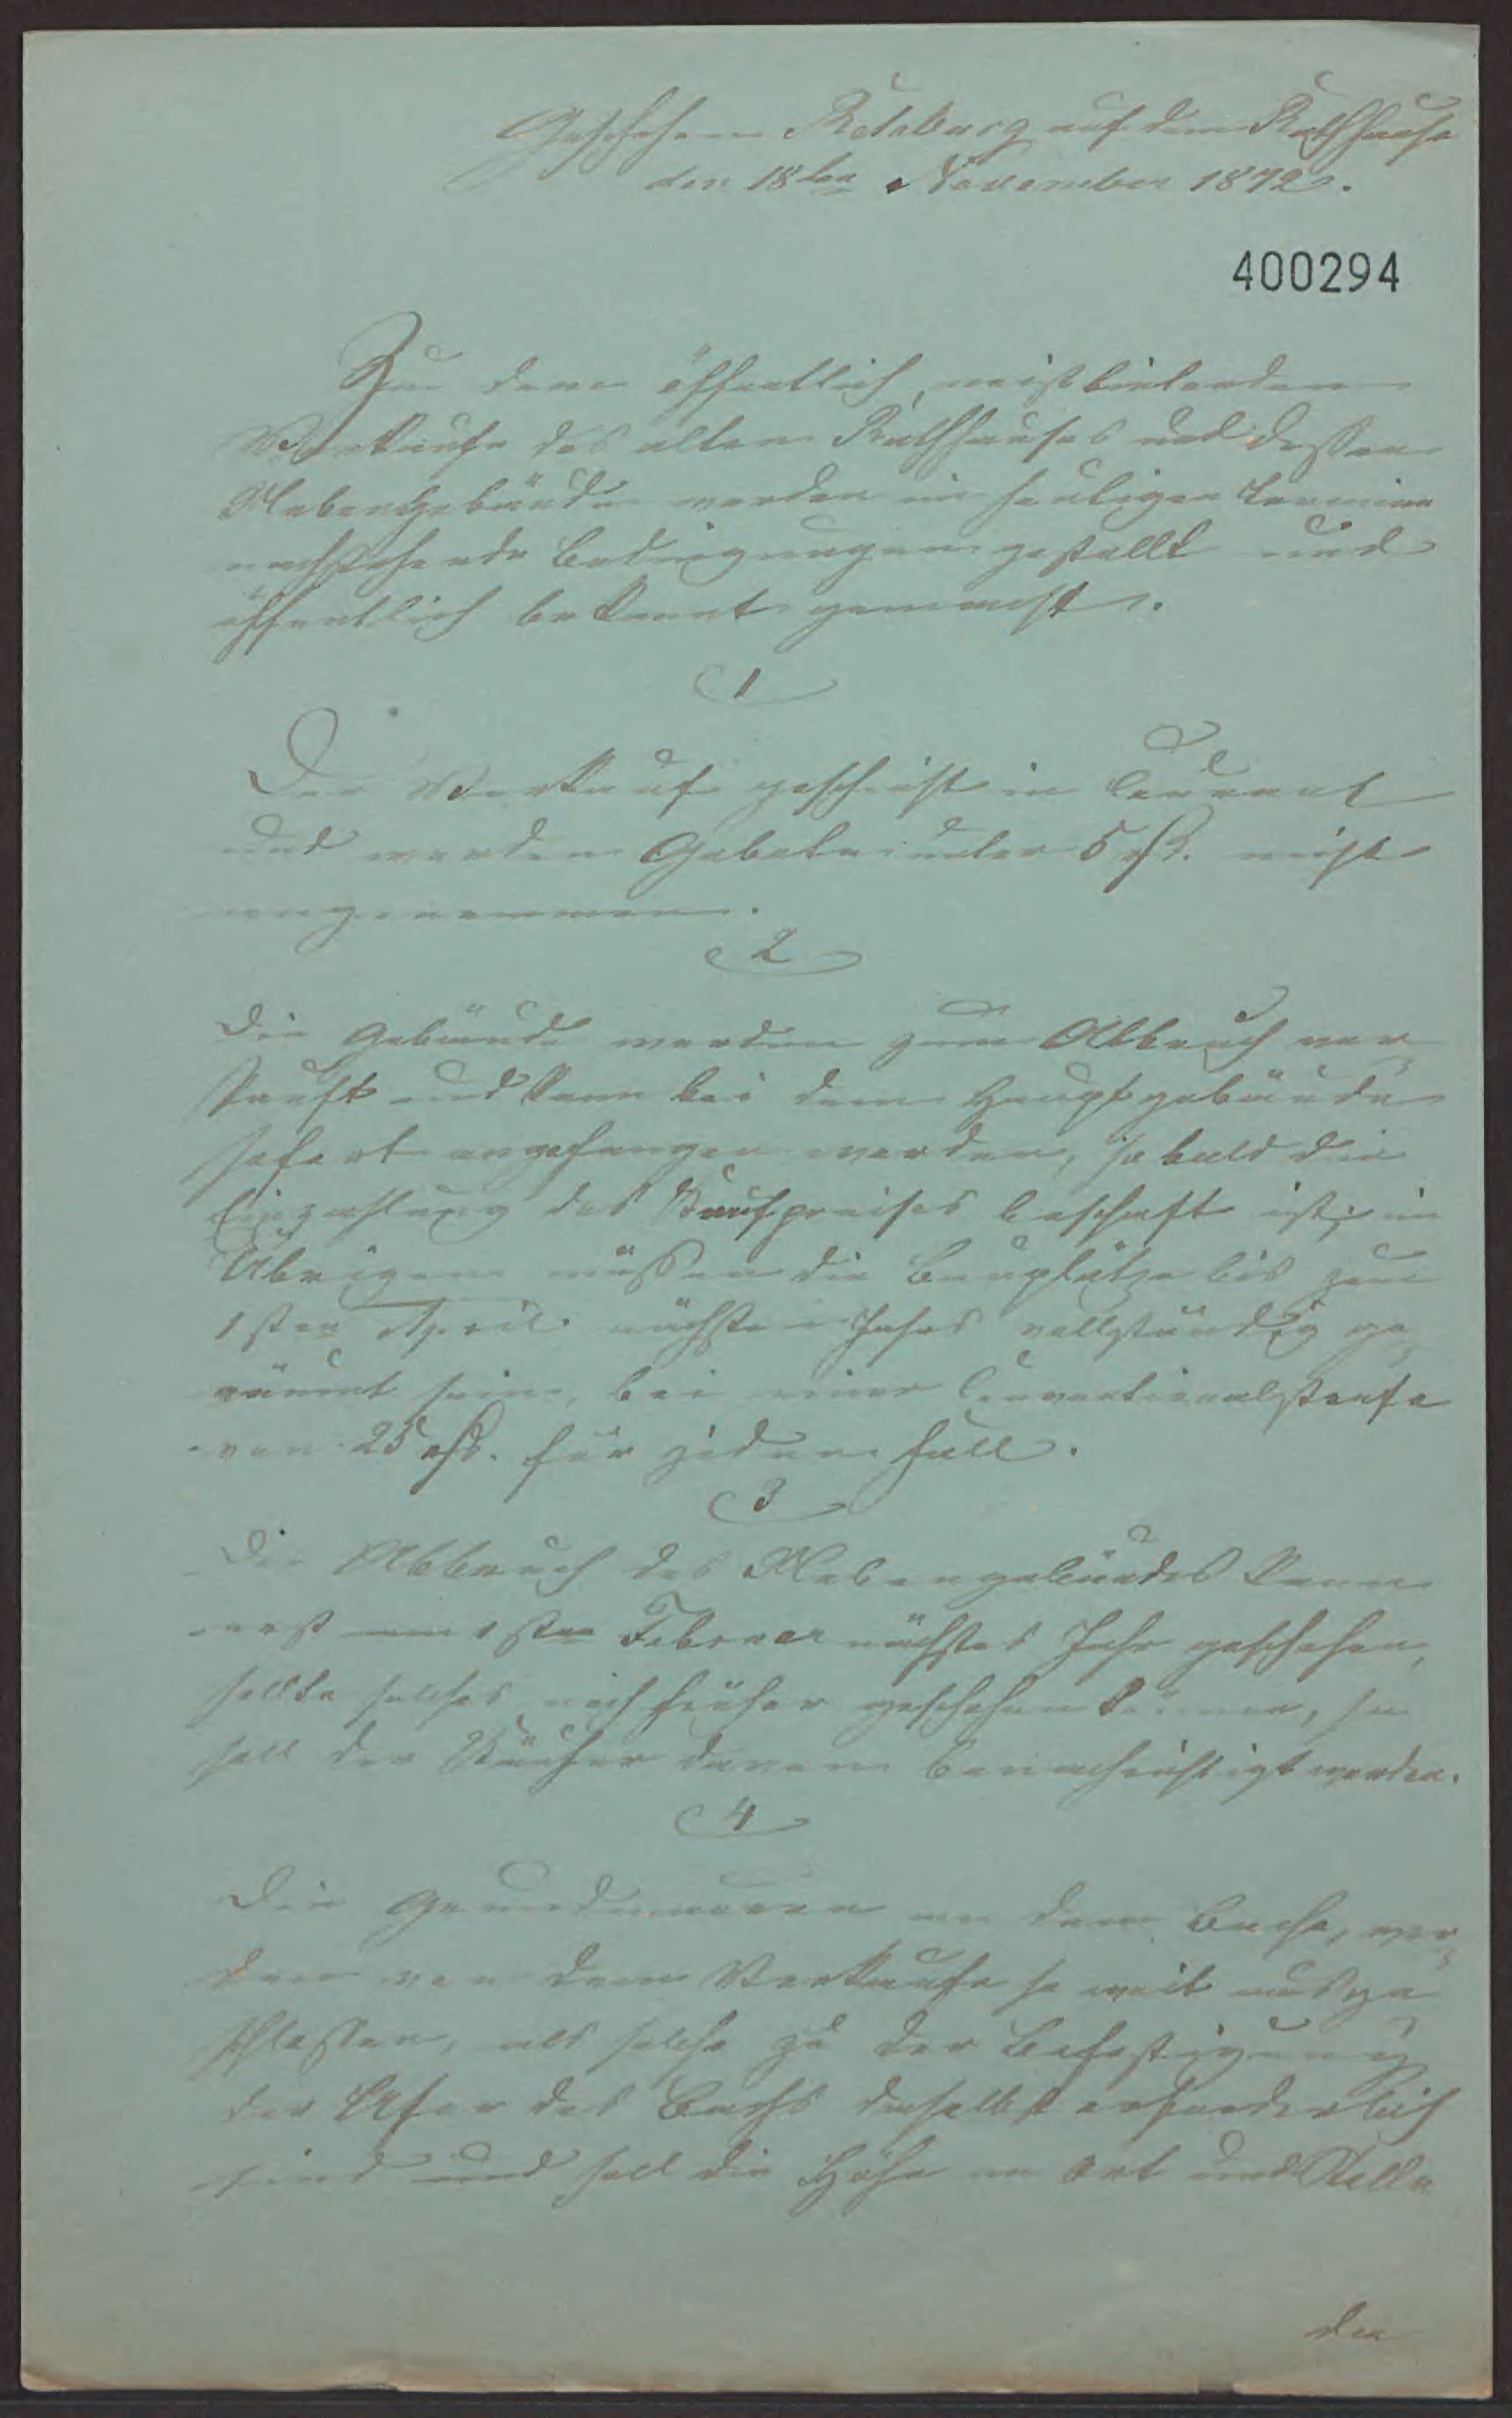 Geschehen Rehburg auf dem Rathhause
den 18ten November 1872.
400294
Zu dem öffentlich meistbietenden
Verkaufe des alten Rathhauses und dessen
Nebengebäude werden im heutigen Termine
nachstehende Bedingungen gestellt und
öffentlich bekannt gemacht.
1
Der Verkauf geschieht in Courant
und werden Gebote unter 5 rth. nicht
angenommen.
2
Die Gebäude werden zum Abbruch ver-
kauft und kann bei dem Hauptgebäude
sofort angefangen werden, sobald die
Einzahlung des Kaufpreises beschafft ist; im
Übrigen müssen die Bauplätze bis zum
1sten April nächsten Jahres vollständig ge-
räumt sein, bei einer Conventionalstrafe
von 25 rth. für jeden Fall.
3
Der Abbruch des Nebengebäudes kann
erst am 1sten Februar nächstes Jahr geschehen,
sollte solches noch früher geschehen können, so
soll der Käufer davon benachrichtigt werden.
4
Die Grundmauern an dem Bache, wer-
den von dem Verkaufe so weit ausge-
schlossen, als solche zu der Befestigung
der Ufer des Bachs daselbst erforderlich
sind und soll die Höhe an Ort und Stelle
den